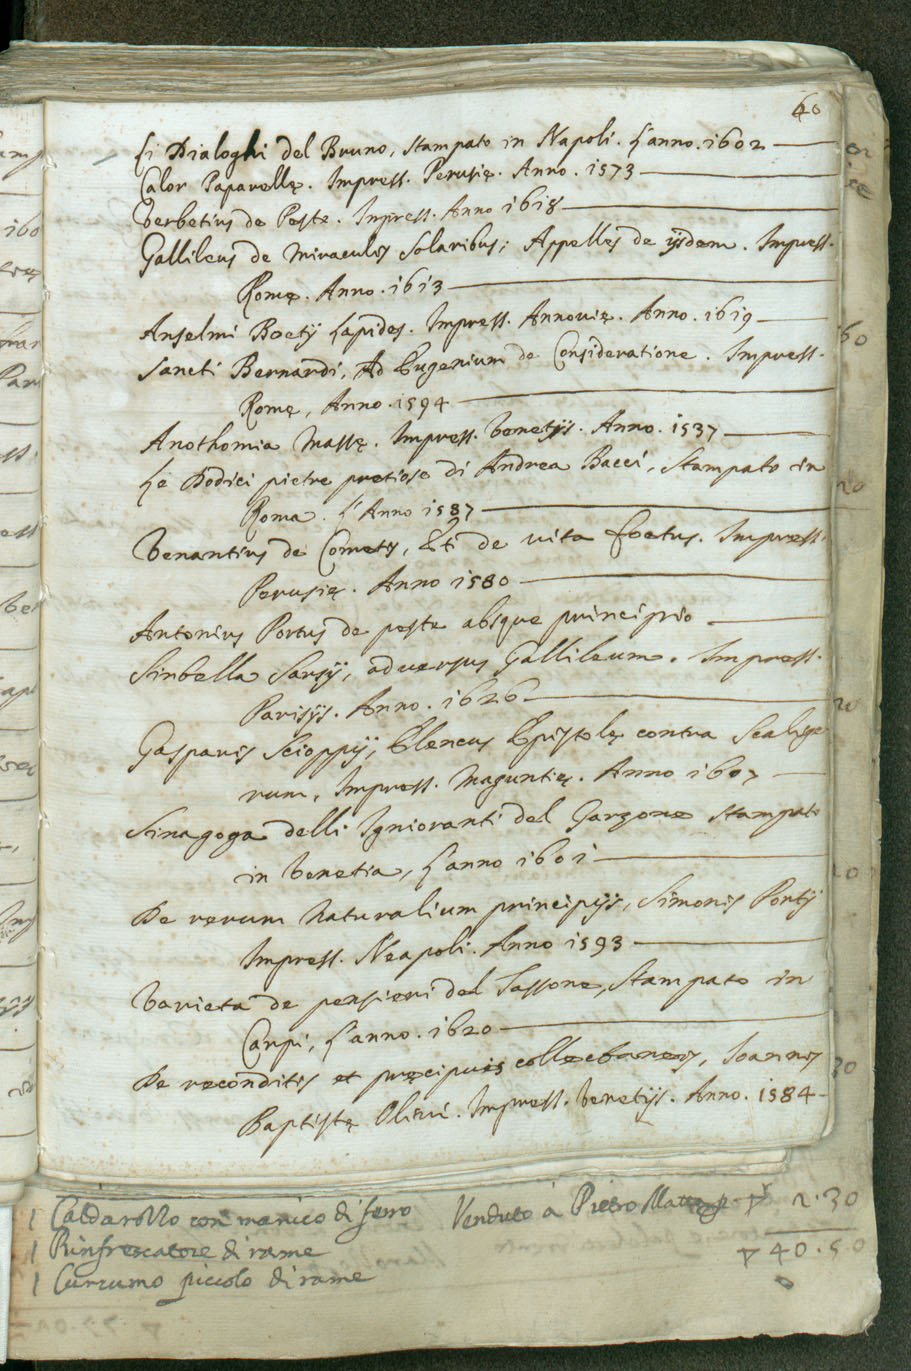 60
Li Dialoghi del Bruno, stampato in Napoli. L'anno. 1602
Calor Paparellę. Impress. Perusię. Anno. 1573
Verbetius de Peste. Impress. Anno 1618
Gallileus de Miraculis Solaribus; Appelles de ijsdem. Impress.
Romę. Anno. 1613
Anselmi Boetij Lapides. Impress. Annovię. Anno. 1619
Sancti Bernardi, Ad Eugenium de Consideratione. Impress.
Romę, Anno. 1594
Anothomia Massę. Impress. Venetijs. Anno. 1537
Le Dodici pietre pretiose di Andrea Bacci, Stampato in
Roma. L'Anno 1587
Venantius de Cometis, Et de vita foetus. Impress.
Perusię. Anno 1580
Antonius Portus de peste absque principio.
Simbella Sarsij, adversus Gallileum. Impress.
Parisijs. Anno. 1626
Gasparis Scioppij, Elencus Epistolę contra Scalige
rum, Impress. Maguntię. Anno 1607
Sinagoga delli Ignioranti del Garzone stampato
in Venetia, L'anno 1601
De rerum Naturalium principijs, Simonis Portij
Impress. Neapoli. Anno 1593
Varieta de pensieri del Tassone, Stampato in
Carpi, L'anno. 1620
De reconditis et pręcipuis collectaneis, Joannis
Baptistę Olivi. Impress. Venetijs. Anno. 1584
1 Caldarozzo con manico di ferro Venduto à Pietro 2.30
1 Rinfrescatore di rame 40.50
1 Cuccumo piccolo di rame